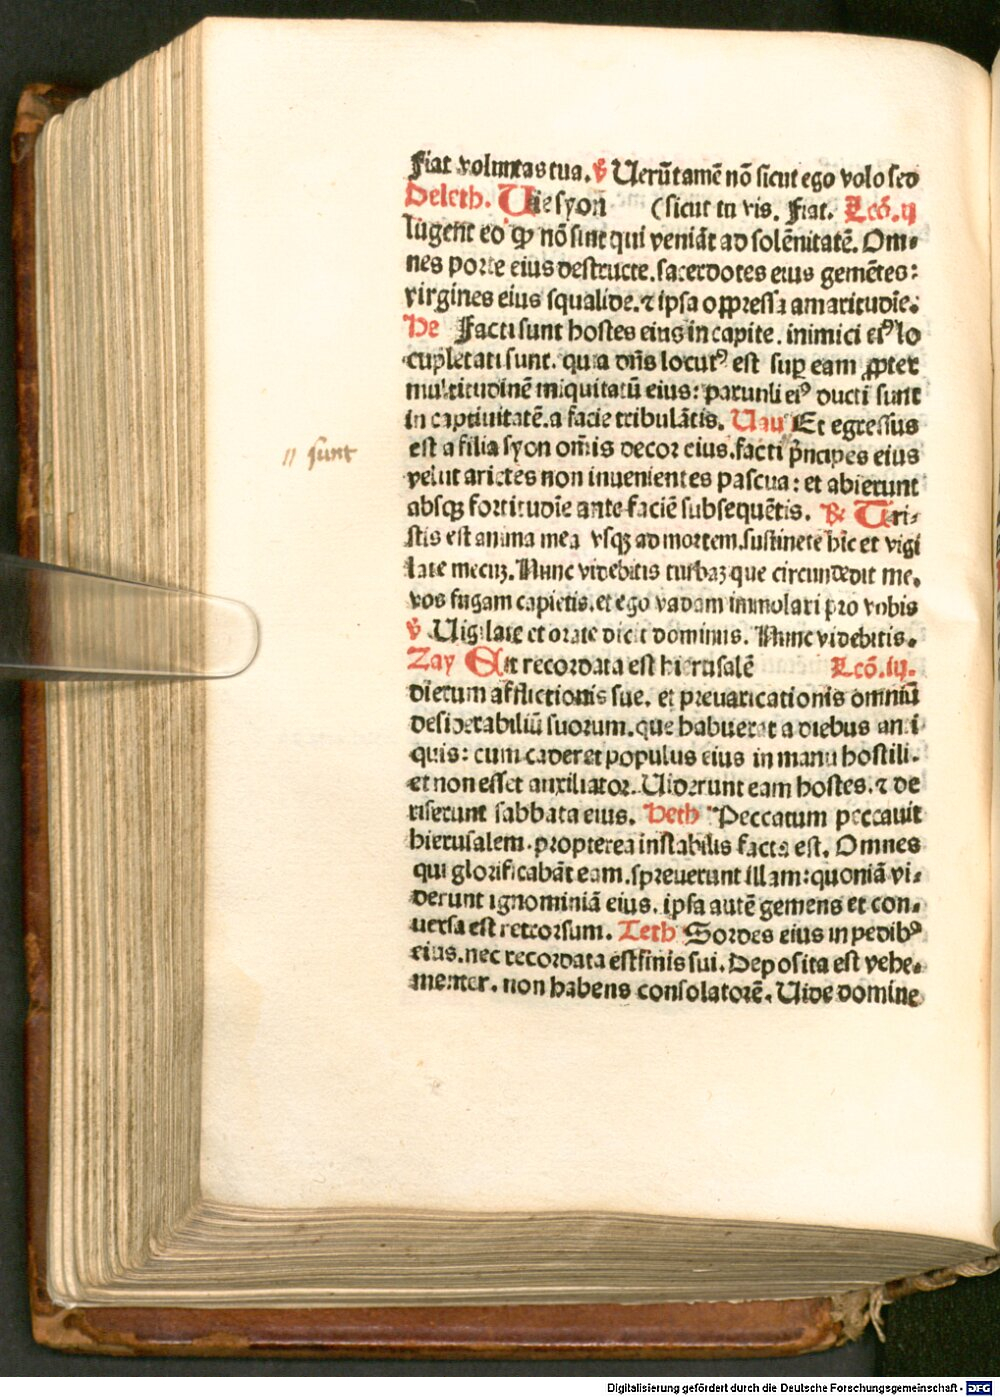 Fiat voluntas tua. ꝟ Uerũtamẽ nõ sicut ego volo sed
Deleth. Uie syon (sicut tu vis. Fiat. Lcõ.ij
lugent eo ꝙ nõ sint qui veniãt ad solẽnitatẽ. Om-
nes porte eius destructe. sacerdotes eius gemẽtes:
virgines eius squalide. ⁊ ipsa oppressa amaritudĩe.
He Facti sunt hostes eius in capite. inimici eiꝰ lo
cupletati sunt. quia dñs locutꝰ est sup eam ꝓpter
multitudinẽ iniquitatũ eius: paruuli eiꝰ ducti sunt
in captiuitatẽ. a facie tribulãtis. Uau Et egressus
est a filia syon om̃is decor eius. facti p̃ncipes eius
velut arietes non inuenientes pascua: et abierunt
" sunt
absqꝫ fortitudĩe ante faciẽ subsequẽtis. ℞ Tri-
stis est anima mea vsqꝫ ad mortem. sustinete hic et vigi
late mecuꝫ. Nunc videbitis turbaꝫ que circundedit me.
vos fugam capietis. et ego vadam immolari pro vobis
ꝟ Uigilate et orate dicit dominus. Nunc videbitis.
Zay Et recordata est hierusalẽ Lcõ.iij.
dierum afflictionis sue. et preuaricationis omniũ
desiderabiliũ suorum. que habuerat a diebus anti
quis: cum caderet populus eius in manu hostili.
et non esset auxiliator. Uiderunt eam hostes. ⁊ de
riserunt sabbata eius. Heth Peccatum peccauit
hierusalem. propterea instabilis facta est. Omnes
qui glorificabãt eam. spreuerunt illam: quoniã vi-
derunt ignominiã eius. ipsa autẽ gemens et con-
uersa est retrorsum. Teth Sordes eius in pedibꝰ
eius. nec recordata est finis sui. Deposita est vehe-
menter. non habens consolatorẽ. Uide domine
Digitalisierung gefördert durch die Deutsche Forschungsgemeinschaft - DFG